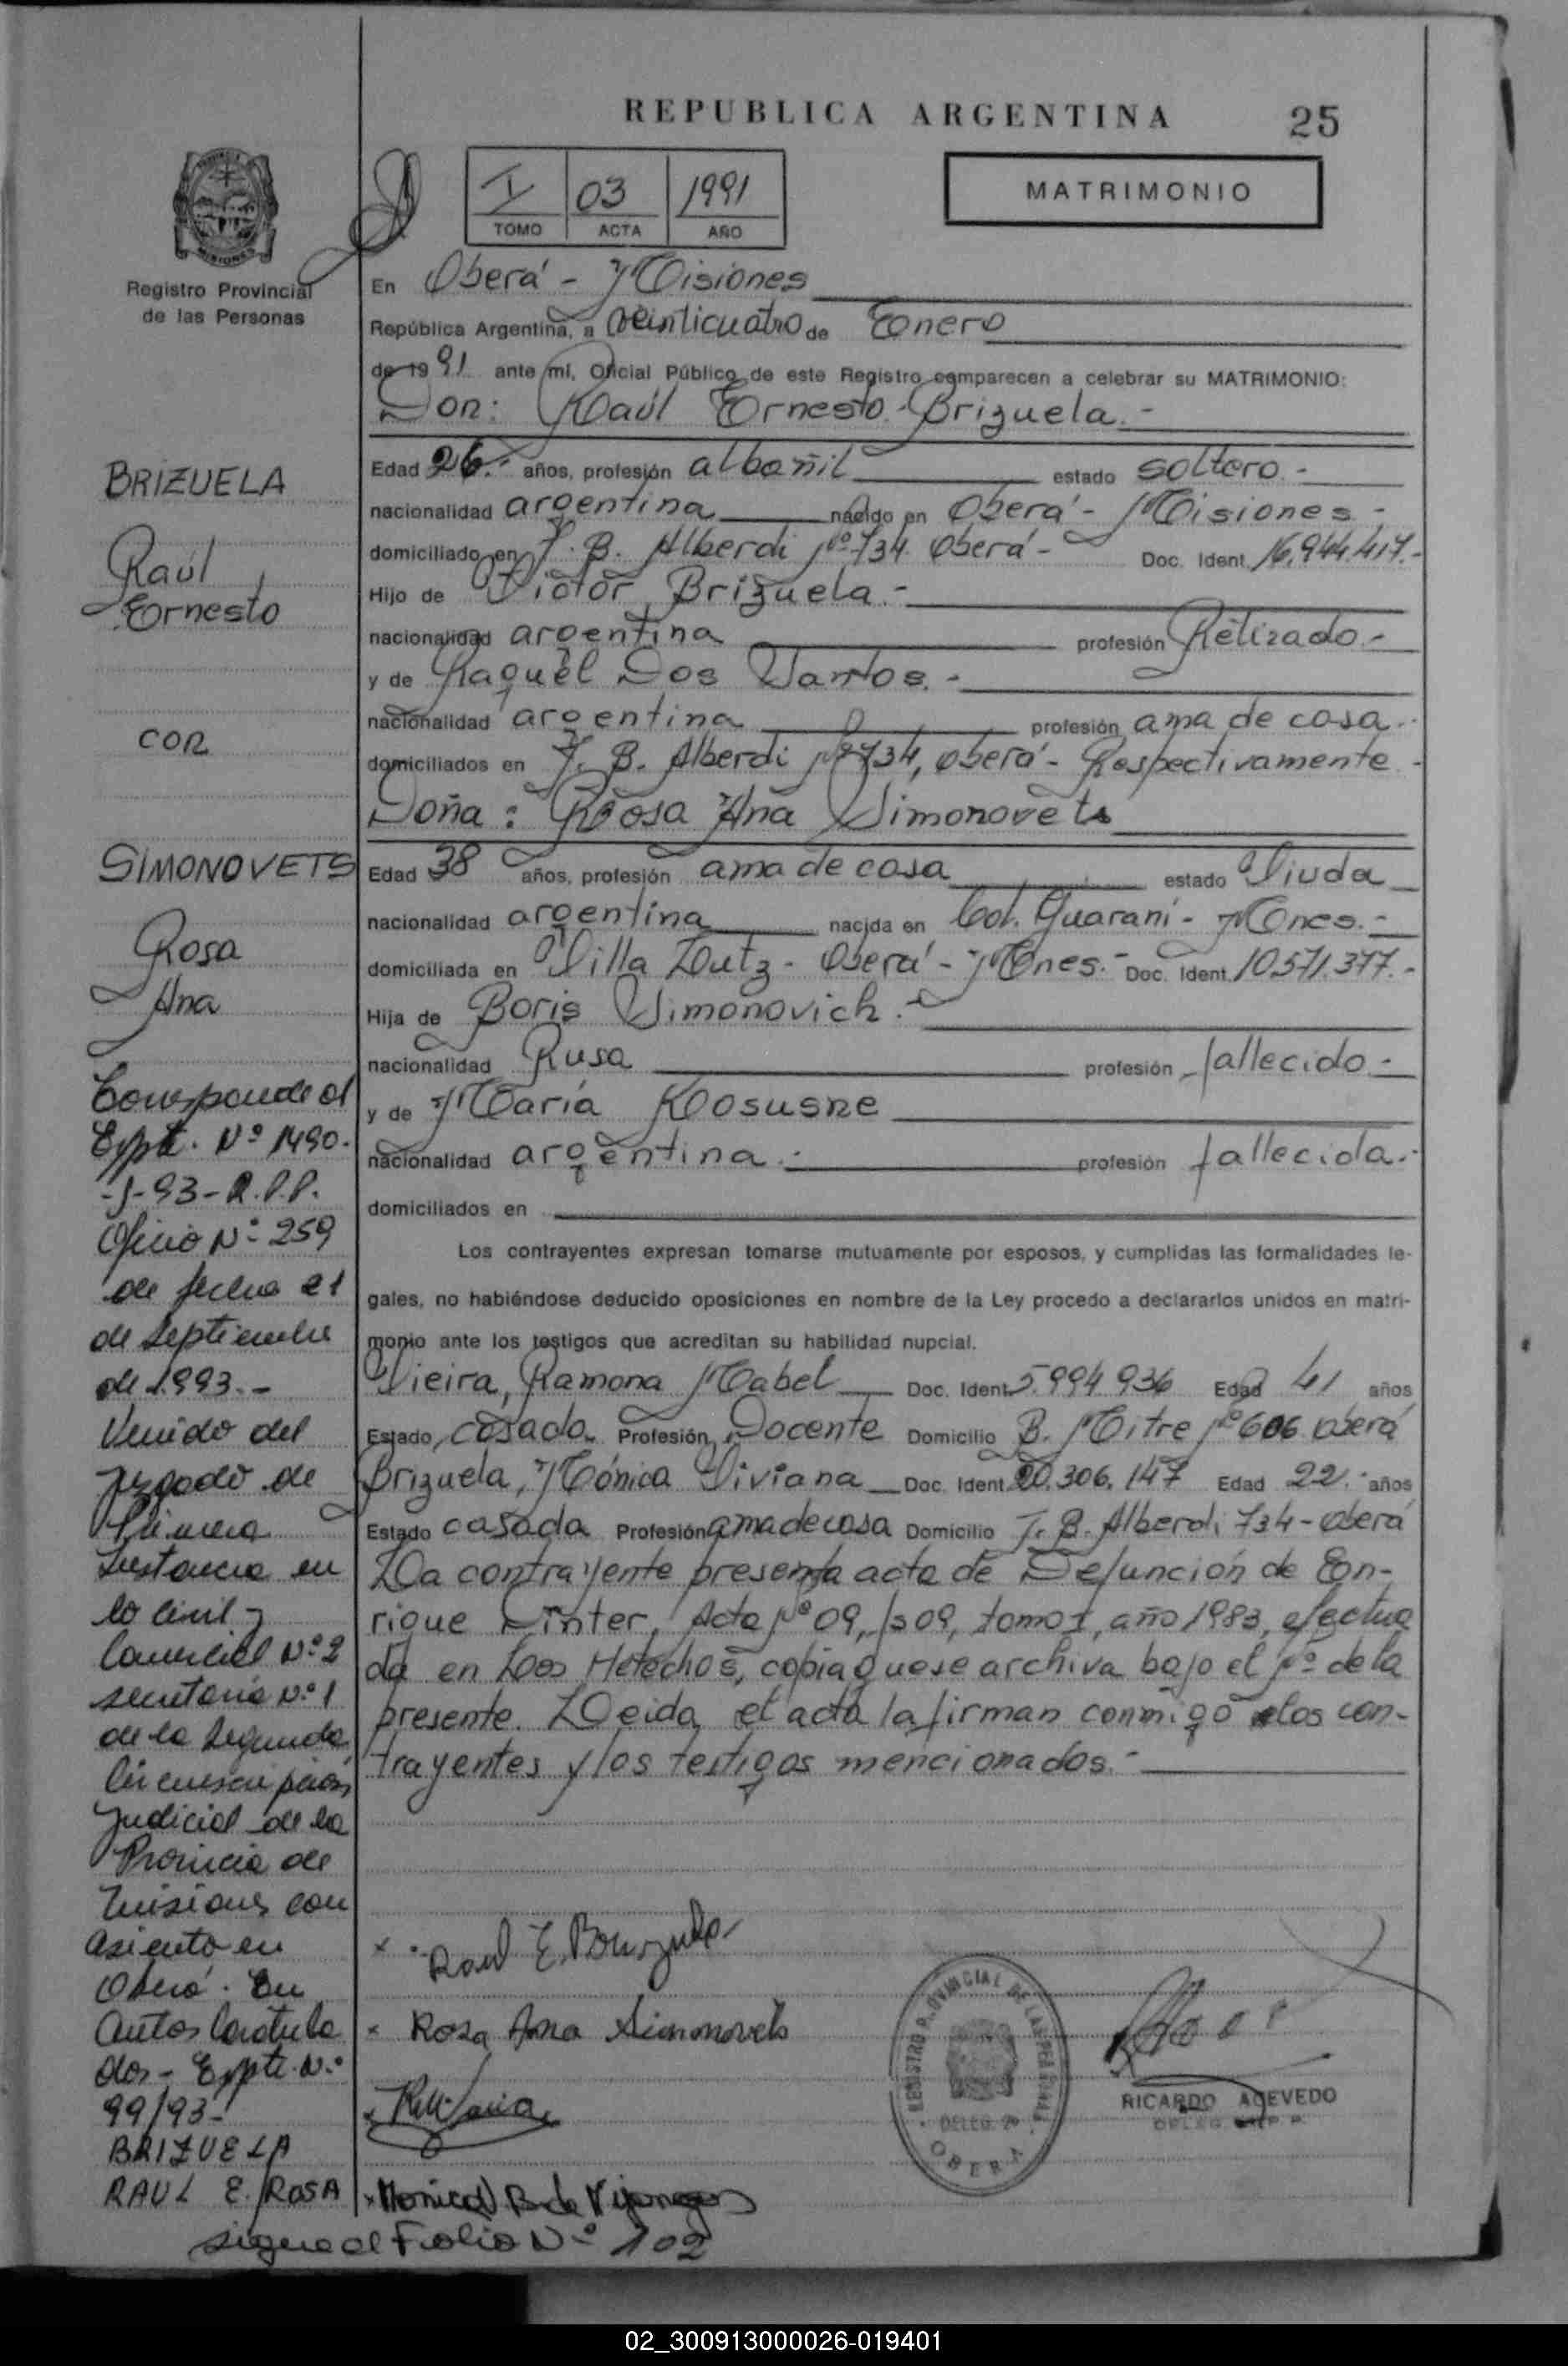 REPUBLICA ARGENTINA 25
I 03 1991
TOMO ACTA AÑO
MATRIMONIO
Registro Provincial
de las Personas
En Oberá - Misiones
República Argentina, a veinticuatro de Enero
de 1991 ante mí, Oficial Público de este Registro comparecen a celebrar su MATRIMONIO:
Don: Raúl Ernesto Brizuela.-
Edad 26.- años, profesión albañil estado soltero.-
nacionalidad argentina nacido en Oberá - Misiones.-
domiciliado en J. B. Alberdi Nº 734 Oberá - Doc. Ident. 16.944.417.-
Hijo de Victor Brizuela.-
nacionalidad argentina profesión Retirado.-
y de Raquel Dos Santos.-
nacionalidad argentina profesión ama de casa.-
domiciliados en J. B. Alberdi Nº 734, Oberá - Respectivamente -
Doña: Rosa Ana Simonovets
Edad 38 años, profesión ama de casa estado Viuda
nacionalidad argentina nacida en Col. Guaraní - Mnes.-
domiciliada en Villa Lutz - Oberá - Mnes.- Doc. Ident. 10.571.377.-
Hija de Boris Simonovich.-
nacionalidad Rusa profesión fallecido.-
y de María Kosusne
nacionalidad argentina.- profesión fallecida.-
domiciliados en
Los contrayentes expresan tomarse mutuamente por esposos, y cumplidas las formalidades le-
gales, no habiéndose deducido oposiciones en nombre de la Ley procedo a declararlos unidos en matri-
monio ante los testigos que acreditan su habilidad nupcial.
Vieira, Ramona Mabel Doc. Ident. 5.994.936 Edad 41 años
Estado casada. Profesión Docente Domicilio B. Mitre Nº 606 Oberá
Brizuela, Mónica Viviana Doc. Ident. 20.306.147 Edad 22.- años
Estado casada Profesión ama de casa Domicilio J. B. Alberdi 734 - Oberá
La contrayente presenta acta de Defunción de En-
rique Linter, Acta Nº 09, fs 09, tomo I, año 1983, efectua
da en Los Helechos, copia que se archiva bajo el Nº de la
presente. Leida el acta la firman conmigo los con-
trayentes y los testigos mencionados.-
BRIZUELA
Raúl
Ernesto
con
SIMONOVETS
Rosa
Ana
Corresponde al
Expte. Nº 1490-
-J-93-R.P.P.
Oficio Nº 259
de fecha 21
de Septiembre
de 1.993.-
Venido del
Juzgado de
Primera
Instancia en
lo Civil y
Comercial Nº 2
secretaria Nº 1
de la Segunda
Circunscripción
Judicial de la
Provincia de
Misiones con
asiento en
Oberá. En
autos caratula
dos - Expte. Nº
99/93-
BRIZUELA
RAUL E. ROSA
sigue al Folio Nº 102
Raul E. Brizuela
Rosa Ana Simonovets
REGISTRO PROVINCIAL DE LAS PERSONAS
OBERA
RICARDO ACEVEDO
02_300913000026-019401